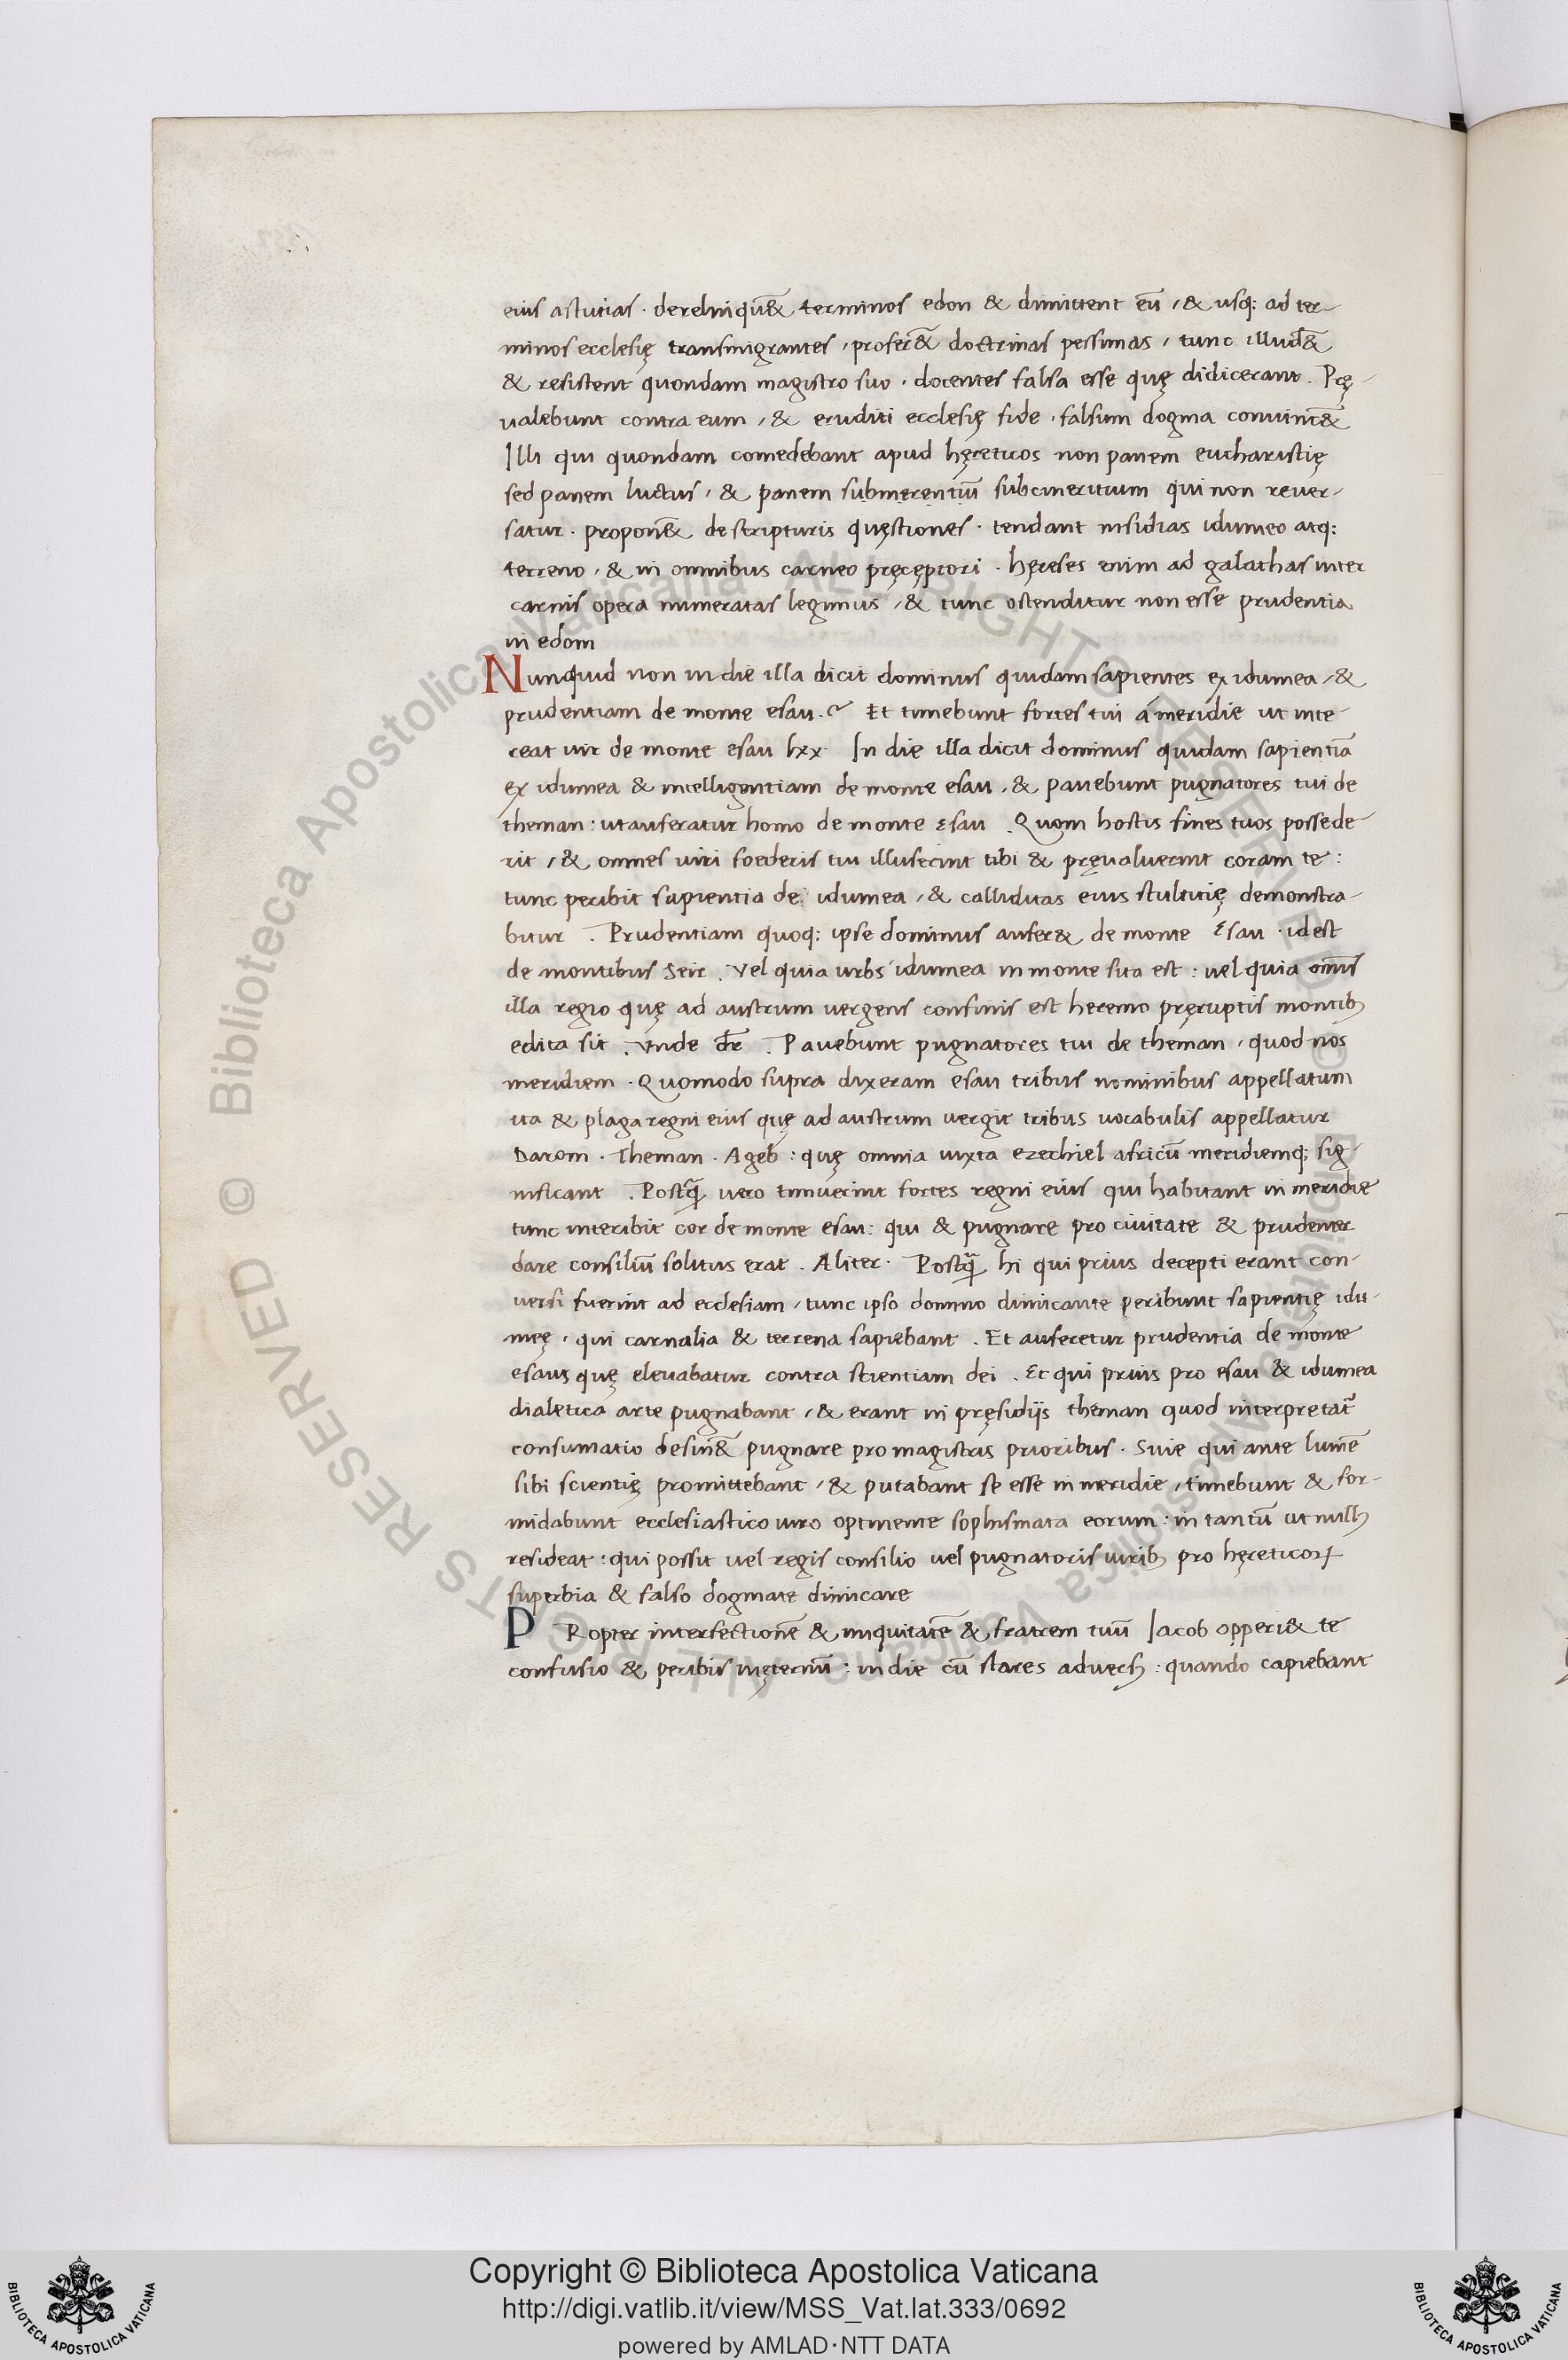 eius astutias · derelinqu̅& terminos edon & dimittent eu̅ / & usq: ad ter-
minos ecclesię transmigrantes / profer̅& doctrinas pessimas / tunc illud̅&
& resistent quondam magistro suo · docentes falsa esse quę didicerant . Prę-
ualebunt contra eum / & eruditi ecclesię fide · falsum dogma conuinc̅&
Illi qui quondam comedebant apud hęreticos non panem eucharistię
sed panem luctus / & panem submerentiu̅ subcineritium qui non reuer-
satur · propon̅& de scripturis quęstiones · tendant insidias idumeo atq:
terreno / & in omnibus carneo pręceptori · hęreses enim ad galathas inter
carnis opera numeratas legimus / & tunc ostenditur non esse prudentia
in edom
Nunquid non in die illa dicit dominus quidam sapientes ex idumea / &
prudentiam de monte esau . Et timebunt fortes tui á meridie ut inte-
reat uir de monte esau lxx · In die illa dicit dominus quidam sapientia̅
ex idumea & intelligentiam de monte esau . & pauebunt pugnatores tui de
theman : ut auferatur homo de monte esau . Quom hostis fines tuos possede
rit / & omnes uiri foederis tui illuserint tibi & pręualuerint coram te :
tunc peribit sapientia de idumea / & calliditas eius stultitię demonstra-
bitur . Prudentiam quoq: ipse dominus aufer& de monte Esau · idest
de montibus Seir . Vel quia urbs idumea in monte sita est : uel quia om̅is
illa regio quę ad austrum uergens confinis est heremo pręruptis montib;
edita sit . Vnde dr̅ . Pauebunt pugnatores tui de theman / quod nos
meridiem · Quomodo supra dixeram esau tribus nominibus appellatum
ita & plaga regni eius quę ad austrum uergit tribus uocabulis appellatur
Darom · Theman · Ageb : quę omnia iuxta ezechiel africu̅ meridiemq; sig-
nificant . Postq̃ uero timuerint fortes regni eius qui habitant in meridie
tunc interibit cor de monte esau : qui & pugnare pro ciuitate & prudenter
dare consiliu̅ solitus erat . Aliter · Postq̃ hi qui prius decepti erant con-
uersi fuerint ad ecclesiam / tunc ipso domino dimicante peribunt sapientię idu-
męę / qui carnalia & terrena sapiebant . Et auferetur prudentia de monte
esaus quę eleuabatur contra scientiam dei . Et qui prius pro esau & idumea
dialetica arte pugnabant / & erant in pręsidijs theman quod interpretat̃
consumatio desin̅& pugnare pro magistris prioribus · Siue qui ante lume̅
sibi scientię promittebant / & putabant se esse in meridie / timebunt & for-
midabunt ecclesiastico uiro optinente sophismata eorum : in tantu̅ ut null;
resideat : qui possit uel regis consilio uel pugnatoris uirib; pro hęreticoꝝ
superbia & falso dogmate dimicare
PRopter interfectione̅ & iniquitate̅ & fratrem tuu̅ Iacob opperi& te
confusio & peribis inęternu̅ : in die cu̅ stares aduers; : quando capiebant
© Biblioteca Apostolica Vaticana ALL RIGHTS RESERVED
Copyright © Biblioteca Apostolica Vaticana
http://digi.vatlib.it/view/MSS_Vat.lat.333/0692
powered by AMLAD·NTT DATA
BIBLIOTECA APOSTOLICA VATICANA
BIBLIOTECA APOSTOLICA VATICANA